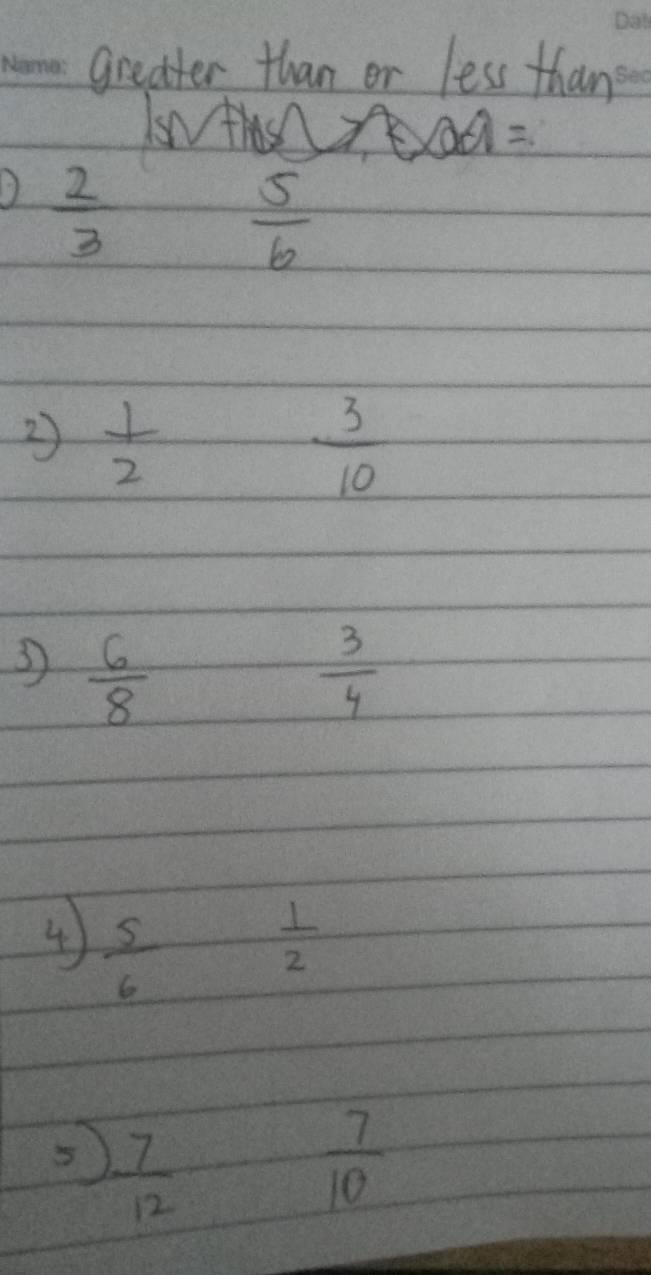 Date
Name: Greatter than or less than Sec
=
1) 2/3 5/6
2) 1/2 3/10
3) 6/8 3/4
4) 5/6 1/2
5) 7/12 7/10